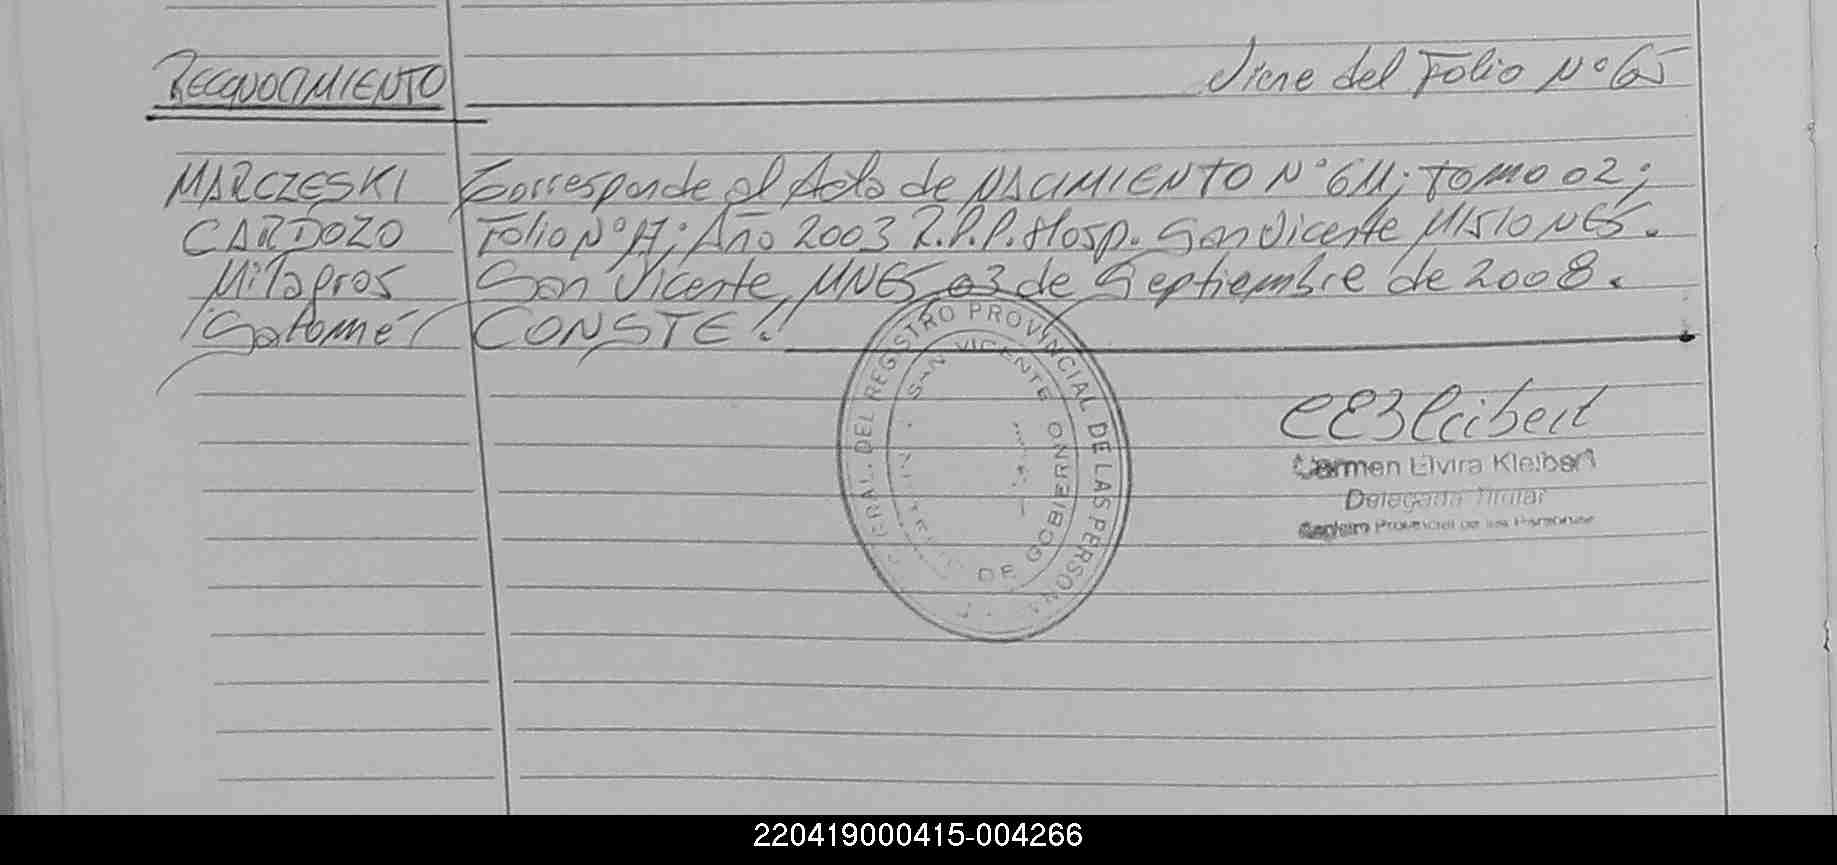 RECONOCIMIENTO
Viene del Folio Nº 65
MARCZESKI
CARDOZO
Milagros
Salomé
Corresponde al Acta de NACIMIENTO Nº 611; TOMO 02;
Folio Nº 17; Año 2003 R.P.P. Hosp. San Vicente MISIONES.
San Vicente, MNES, 03 de Septiembre de 2008.
CONSTE!
REGISTRO PROVINCIAL DE LAS PERSONA
SAN VICENTE
DE GOBIERNO
CEKleibert
Carmen Elvira Kleibert
Delegada Titular
Registro Provincial de las Personas
220419000415-004266